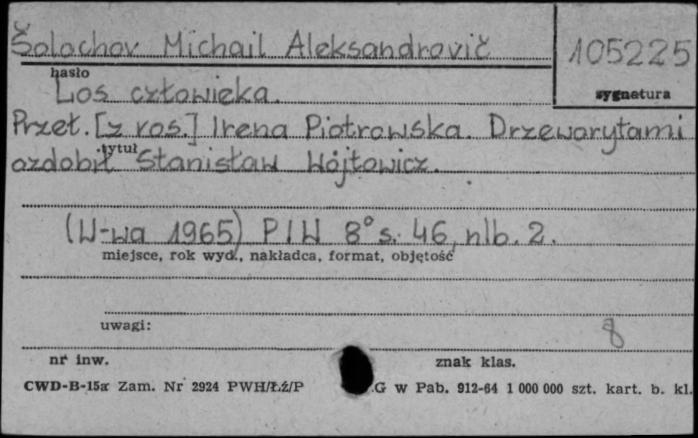 Šolochov Michail Aleksandrovič
105225
hasło
sygnatura
Los człowieka.
Przeł. [z ros.] Irena Piotrowska. Drzeworytami
tytuł
ozdobił Stanisław Wójtowicz.
(W-wa 1965) PIW 8° s. 46, nlb. 2.
miejsce, rok wyd., nakładca, format, objętość
uwagi:
8
nr inw.
znak klas.
CWD-B-15a Zam. Nr 2924 PWH/Łź/P
.G w Pab. 912-64 1 000 000 szt. kart. b. kl.